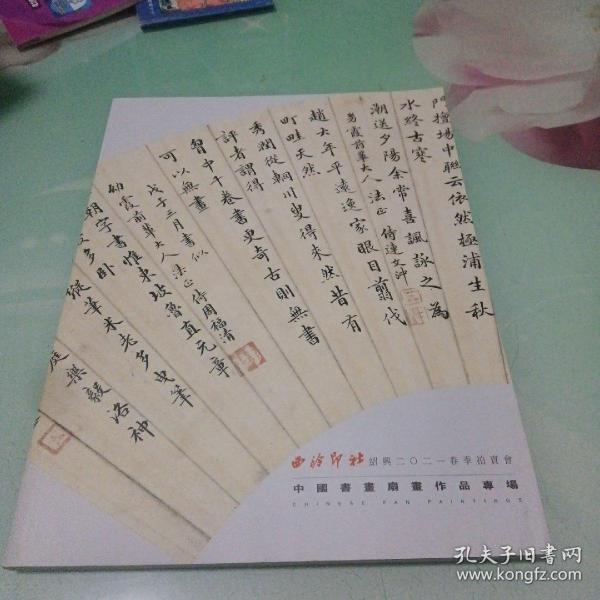 閒擔場中聯云依然極浦生秋
水終古寒
潮送夕陽余常喜諷詠之為
易霞前輩大人法正 侍達文沖
趙大年平遠逸家眼目翦伐
町畦天然
秀潤從輞川叟得來然昔有
評者謂得
胷中千卷書更奇古則無書
可以無畫
戊子三月書似
幼霞前輩大人法正 侍周福清
朝字書惟東坡魯直元章
多卧
縱筆米老多曳筆
庭樂毅洛神
西泠印社 紹興二〇二一春季拍賣會
中國書畫扇畫作品專場
CHINESE FAN PAINTINGS
孔夫子旧书网
www.kongfz.com